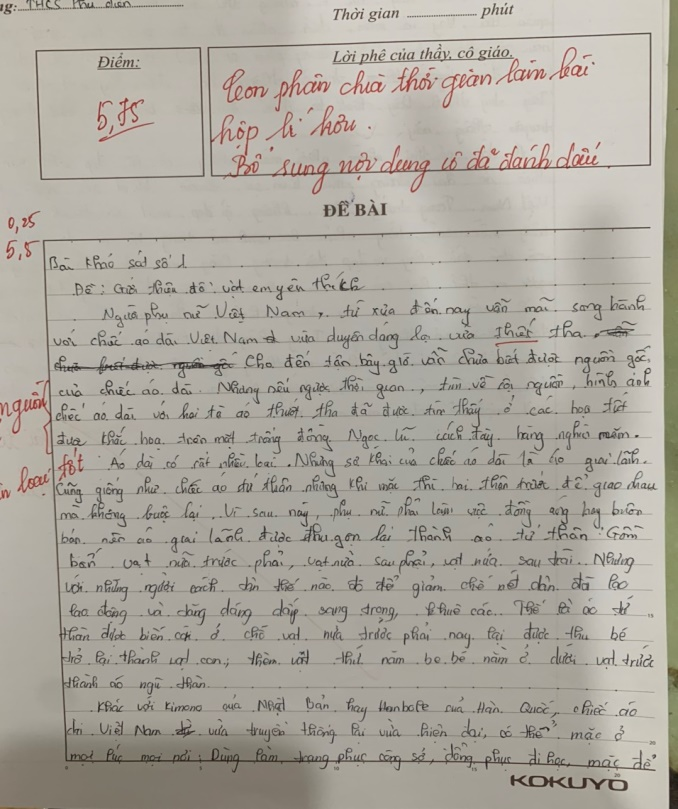 THCS Phú diễn
Thời gian phút
Điểm:
5,75
Lời phê của thầy, cô giáo.
Con phân chia thời gian làm bài
hợp lí hơn.
Bổ sung nội dung cô đã đánh dấu
ĐỀ BÀI
0,25
5,5
Bài khảo sát số 1
Đề: Giới thiệu đồ vật em yêu thích
Người phụ nữ Việt Nam, từ xưa đến nay vẫn mãi song hành
với chiếc áo dài Việt Nam vừa duyên dáng lại vừa thướt tha.
Cho đến tận bây giờ vẫn chưa biết được nguồn gốc
của chiếc áo dài. Nhưng nếu ngược thời gian, tìm về cội nguồn, hình ảnh
chiếc áo dài với hai tà áo thướt tha đã được tìm thấy ở các hoạ tiết
được khắc hoạ trên mặt trống đồng Ngọc Lũ cách đây hàng nghìn năm.
nguồn
tốt
loại
Áo dài có rất nhiều loại. Nhưng sơ khai của chiếc áo dài là áo giai lãnh.
Cũng giống như chiếc áo tứ thân nhưng khi mặc thì hai thân trước để giao nhau
mà không buộc lại. Vì sau này, phụ nữ phải làm việc đồng áng hay buôn
bán nên áo giai lãnh được thu gọn lại thành áo tứ thân: Gồm
bốn vạt nửa trước phải, vạt nửa sau phải, vạt nửa sau trái. Nhưng
với những người cách tân thế nào đó để giảm chế nét dân dã lao
lao động và tăng dáng dấp sang trọng, khuê các. Thế là áo tứ
thân được biến cải ở chỗ vạt nửa trước phải nay lại được thu bé
trở lại thành vạt con; thêm vạt thứ năm be bé nằm ở dưới vạt trước
thành áo ngũ thân.
Khác với kimono của Nhật Bản hay Hanbok của Hàn Quốc, chiếc áo
dài Việt Nam vừa truyền thống lại vừa hiện đại, có thể mặc ở
mọi lúc mọi nơi: Dùng làm trang phục công sở, đồng phục đi học, mặc để
KOKUYO